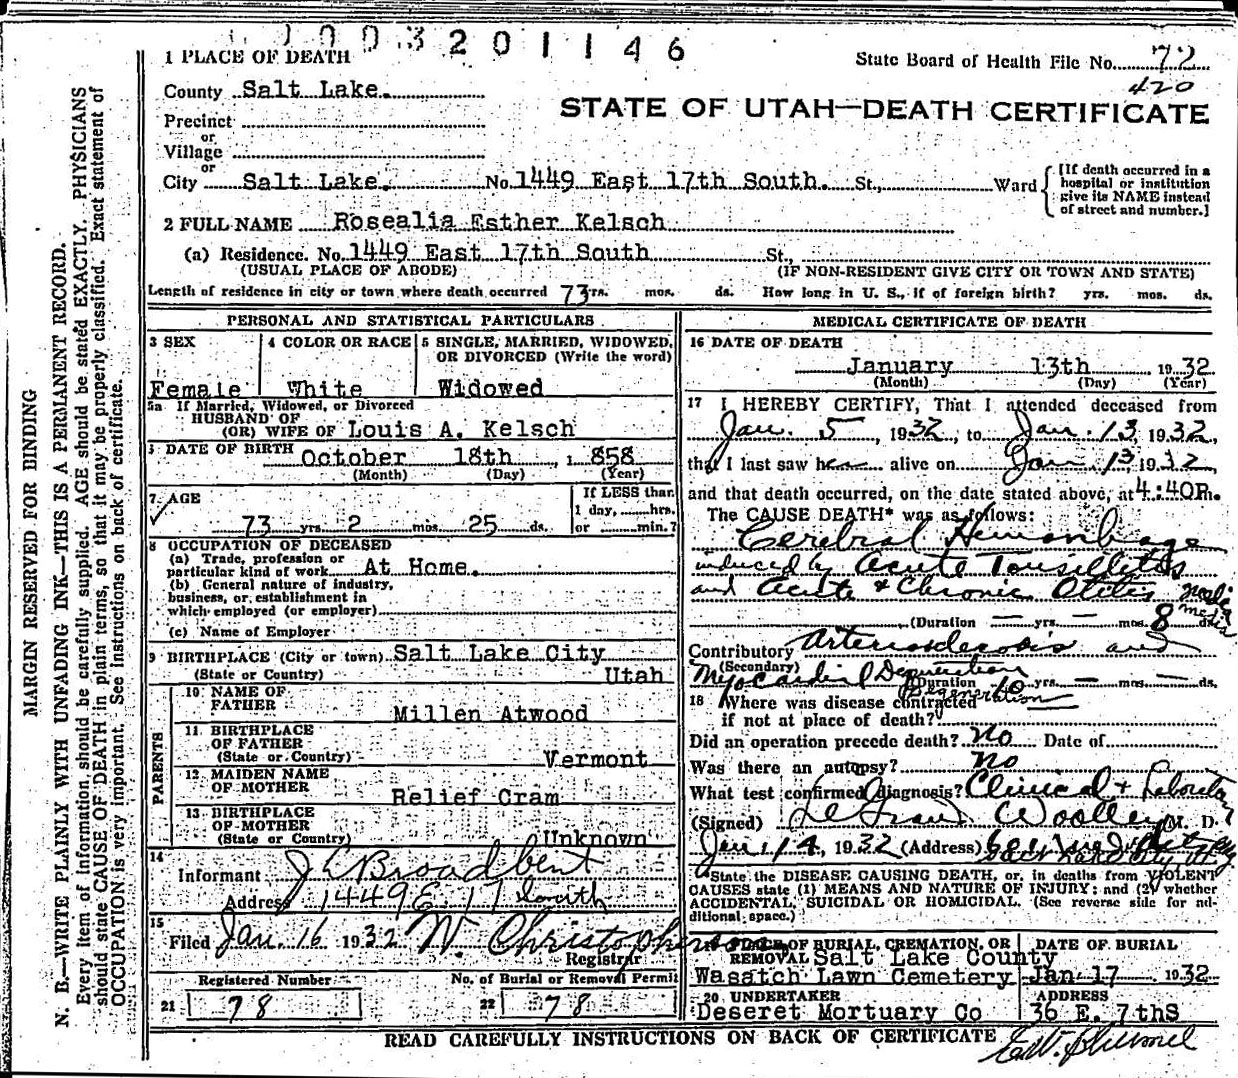 1003201146
State Board of Health File No. 72
420
1 PLACE OF DEATH
County Salt Lake.
STATE OF UTAH—DEATH CERTIFICATE
Precinct
or
Village
or
City Salt Lake. No. 1449 East 17th South. St., Ward
[If death occurred in a hospital or institution give its NAME instead of street and number.]
2 FULL NAME Rosealia Esther Kelsch
(a) Residence. No. 1449 East 17th South St.,
(USUAL PLACE OF ABODE) (IF NON-RESIDENT GIVE CITY OR TOWN AND STATE)
Length of residence in city or town where death occurred 73 yrs. mos. ds. How long in U. S., if of foreign birth? yrs. mos. ds.
PERSONAL AND STATISTICAL PARTICULARS
3 SEX 4 COLOR OR RACE 5 SINGLE, MARRIED, WIDOWED, OR DIVORCED (Write the word)
Female White Widowed
5a If Married, Widowed, or Divorced
HUSBAND OF
(OR) WIFE OF Louis A. Kelsch
DATE OF BIRTH October 18th, 1858
(Month) (Day) (Year)
7. AGE
If LESS than
1 day, hrs.
or min.?
73 yrs. 2 mos. 25 ds.
8 OCCUPATION OF DECEASED
(a) Trade, profession or
particular kind of work At Home.
(b) General nature of industry,
business, or establishment in
which employed (or employer)
(c) Name of Employer
9 BIRTHPLACE (City or town) Salt Lake City
(State or Country) Utah
PARENTS
10 NAME OF
FATHER Millen Atwood
11 BIRTHPLACE
OF FATHER
(State or Country) Vermont
12 MAIDEN NAME
OF MOTHER Relief Cram
13 BIRTHPLACE
OF MOTHER
(State or Country) Unknown
14
Informant J L Broadbent
Address 1449 E 17 South
15
Filed Jan. 16 1932 W. Christopherson
Registrar
Registered Number No. of Burial or Removal Permit
21 78 22 78
MEDICAL CERTIFICATE OF DEATH
16 DATE OF DEATH
January 13th 1932
(Month) (Day) (Year)
17 I HEREBY CERTIFY, That I attended deceased from
Jan. 5, 1932, to Jan. 13, 1932,
that I last saw her alive on Jan. 13 1932,
and that death occurred, on the date stated above, at 4:40P.m.
The CAUSE DEATH* was as follows:
Cerebral Hemorrhage
induced by Acute Tonsilletis
and Acute & Chronic Otitis Media
media
(Duration — yrs. — mos. 8 ds.
Contributory Arteriosclerosis and
(Secondary)
Myocardial Degeneration
Degeneration
(Duration 10 yrs. — mos. — ds.
18 Where was disease contracted
if not at place of death?
Did an operation precede death? No Date of
Was there an autopsy? No
What test confirmed diagnosis? Clinical & Laboratory
(Signed) LeGrand Woolley M. D.
Jan 14, 1932 (Address)
*State the DISEASE CAUSING DEATH, or, in deaths from VIOLENT
CAUSES state (1) MEANS AND NATURE OF INJURY; and (2) whether
ACCIDENTAL, SUICIDAL OR HOMICIDAL. (See reverse side for additional space.)
19 PLACE OF BURIAL, CREMATION, OR
REMOVAL Salt Lake County
Wasatch Lawn Cemetery
DATE OF BURIAL
Jan 17 1932
20 UNDERTAKER
Deseret Mortuary Co
ADDRESS
36 E. 7thS
READ CAREFULLY INSTRUCTIONS ON BACK OF CERTIFICATE
MARGIN RESERVED FOR BINDING
N. B.—WRITE PLAINLY WITH UNFADING INK—THIS IS A PERMANENT RECORD.
Every item of information should be carefully supplied. AGE should be stated EXACTLY. PHYSICIANS
should state CAUSE OF DEATH in plain terms, so that it may be properly classified. Exact statement of
OCCUPATION is very important. See Instructions on back of certificate.